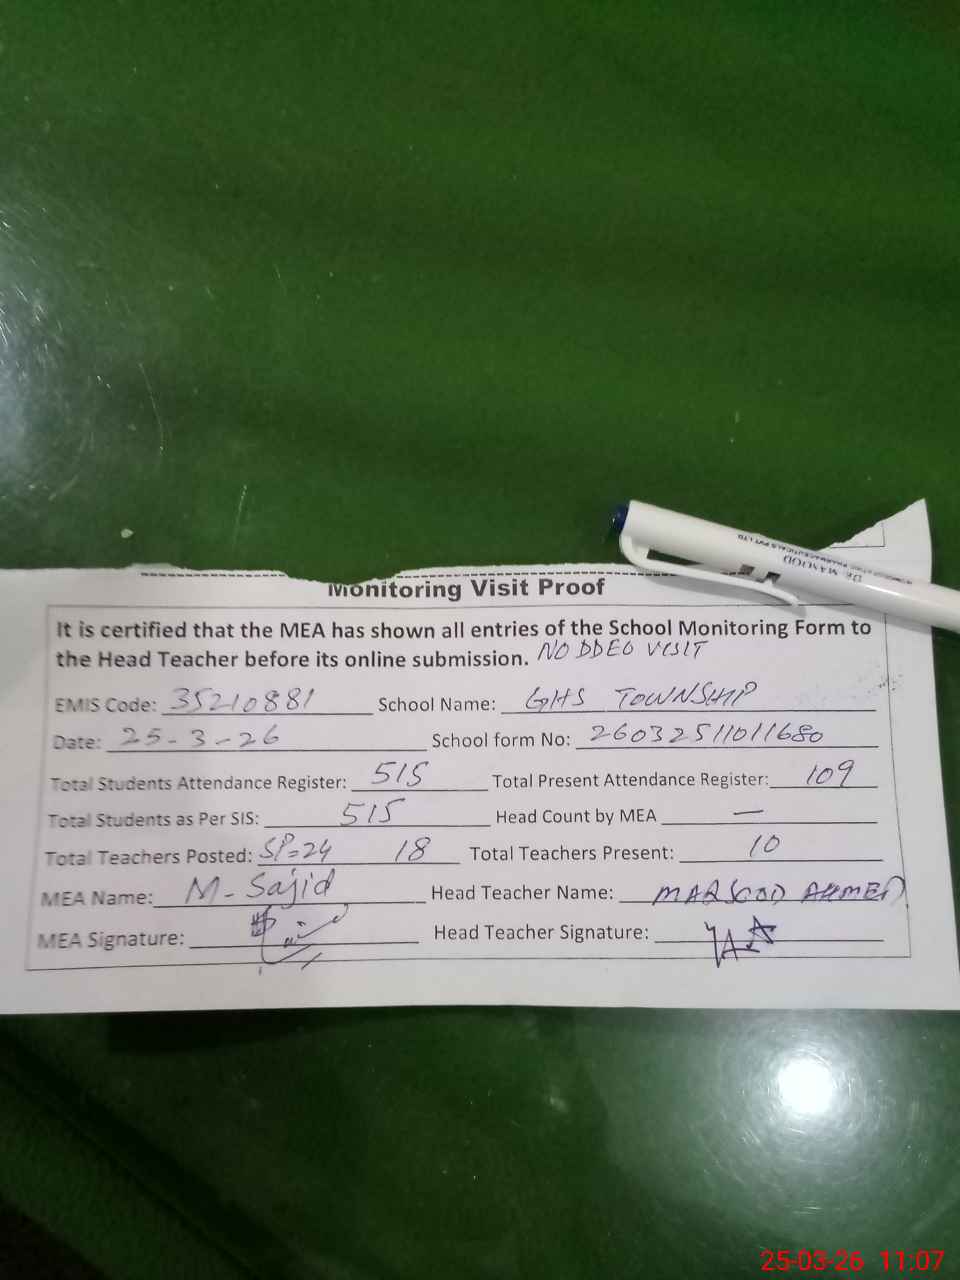 DR MASOOD
PHARMACEUTICALS PVT LTD
Monitoring Visit Proof
It is certified that the MEA has shown all entries of the School Monitoring Form to
the Head Teacher before its online submission. NO DDEO VISIT
EMIS Code: 35210881 School Name: GHS TOWNSHIP
Date: 25-3-26 School form No: 26032511011680
Total Students Attendance Register: 515 Total Present Attendance Register: 109
Total Students as Per SIS: 515 Head Count by MEA —
Total Teachers Posted: SP=24 18 Total Teachers Present: 10
MEA Name: M-Sajid Head Teacher Name: MAQSOOD AHMED
MEA Signature: Head Teacher Signature:
25-03-26 11:07